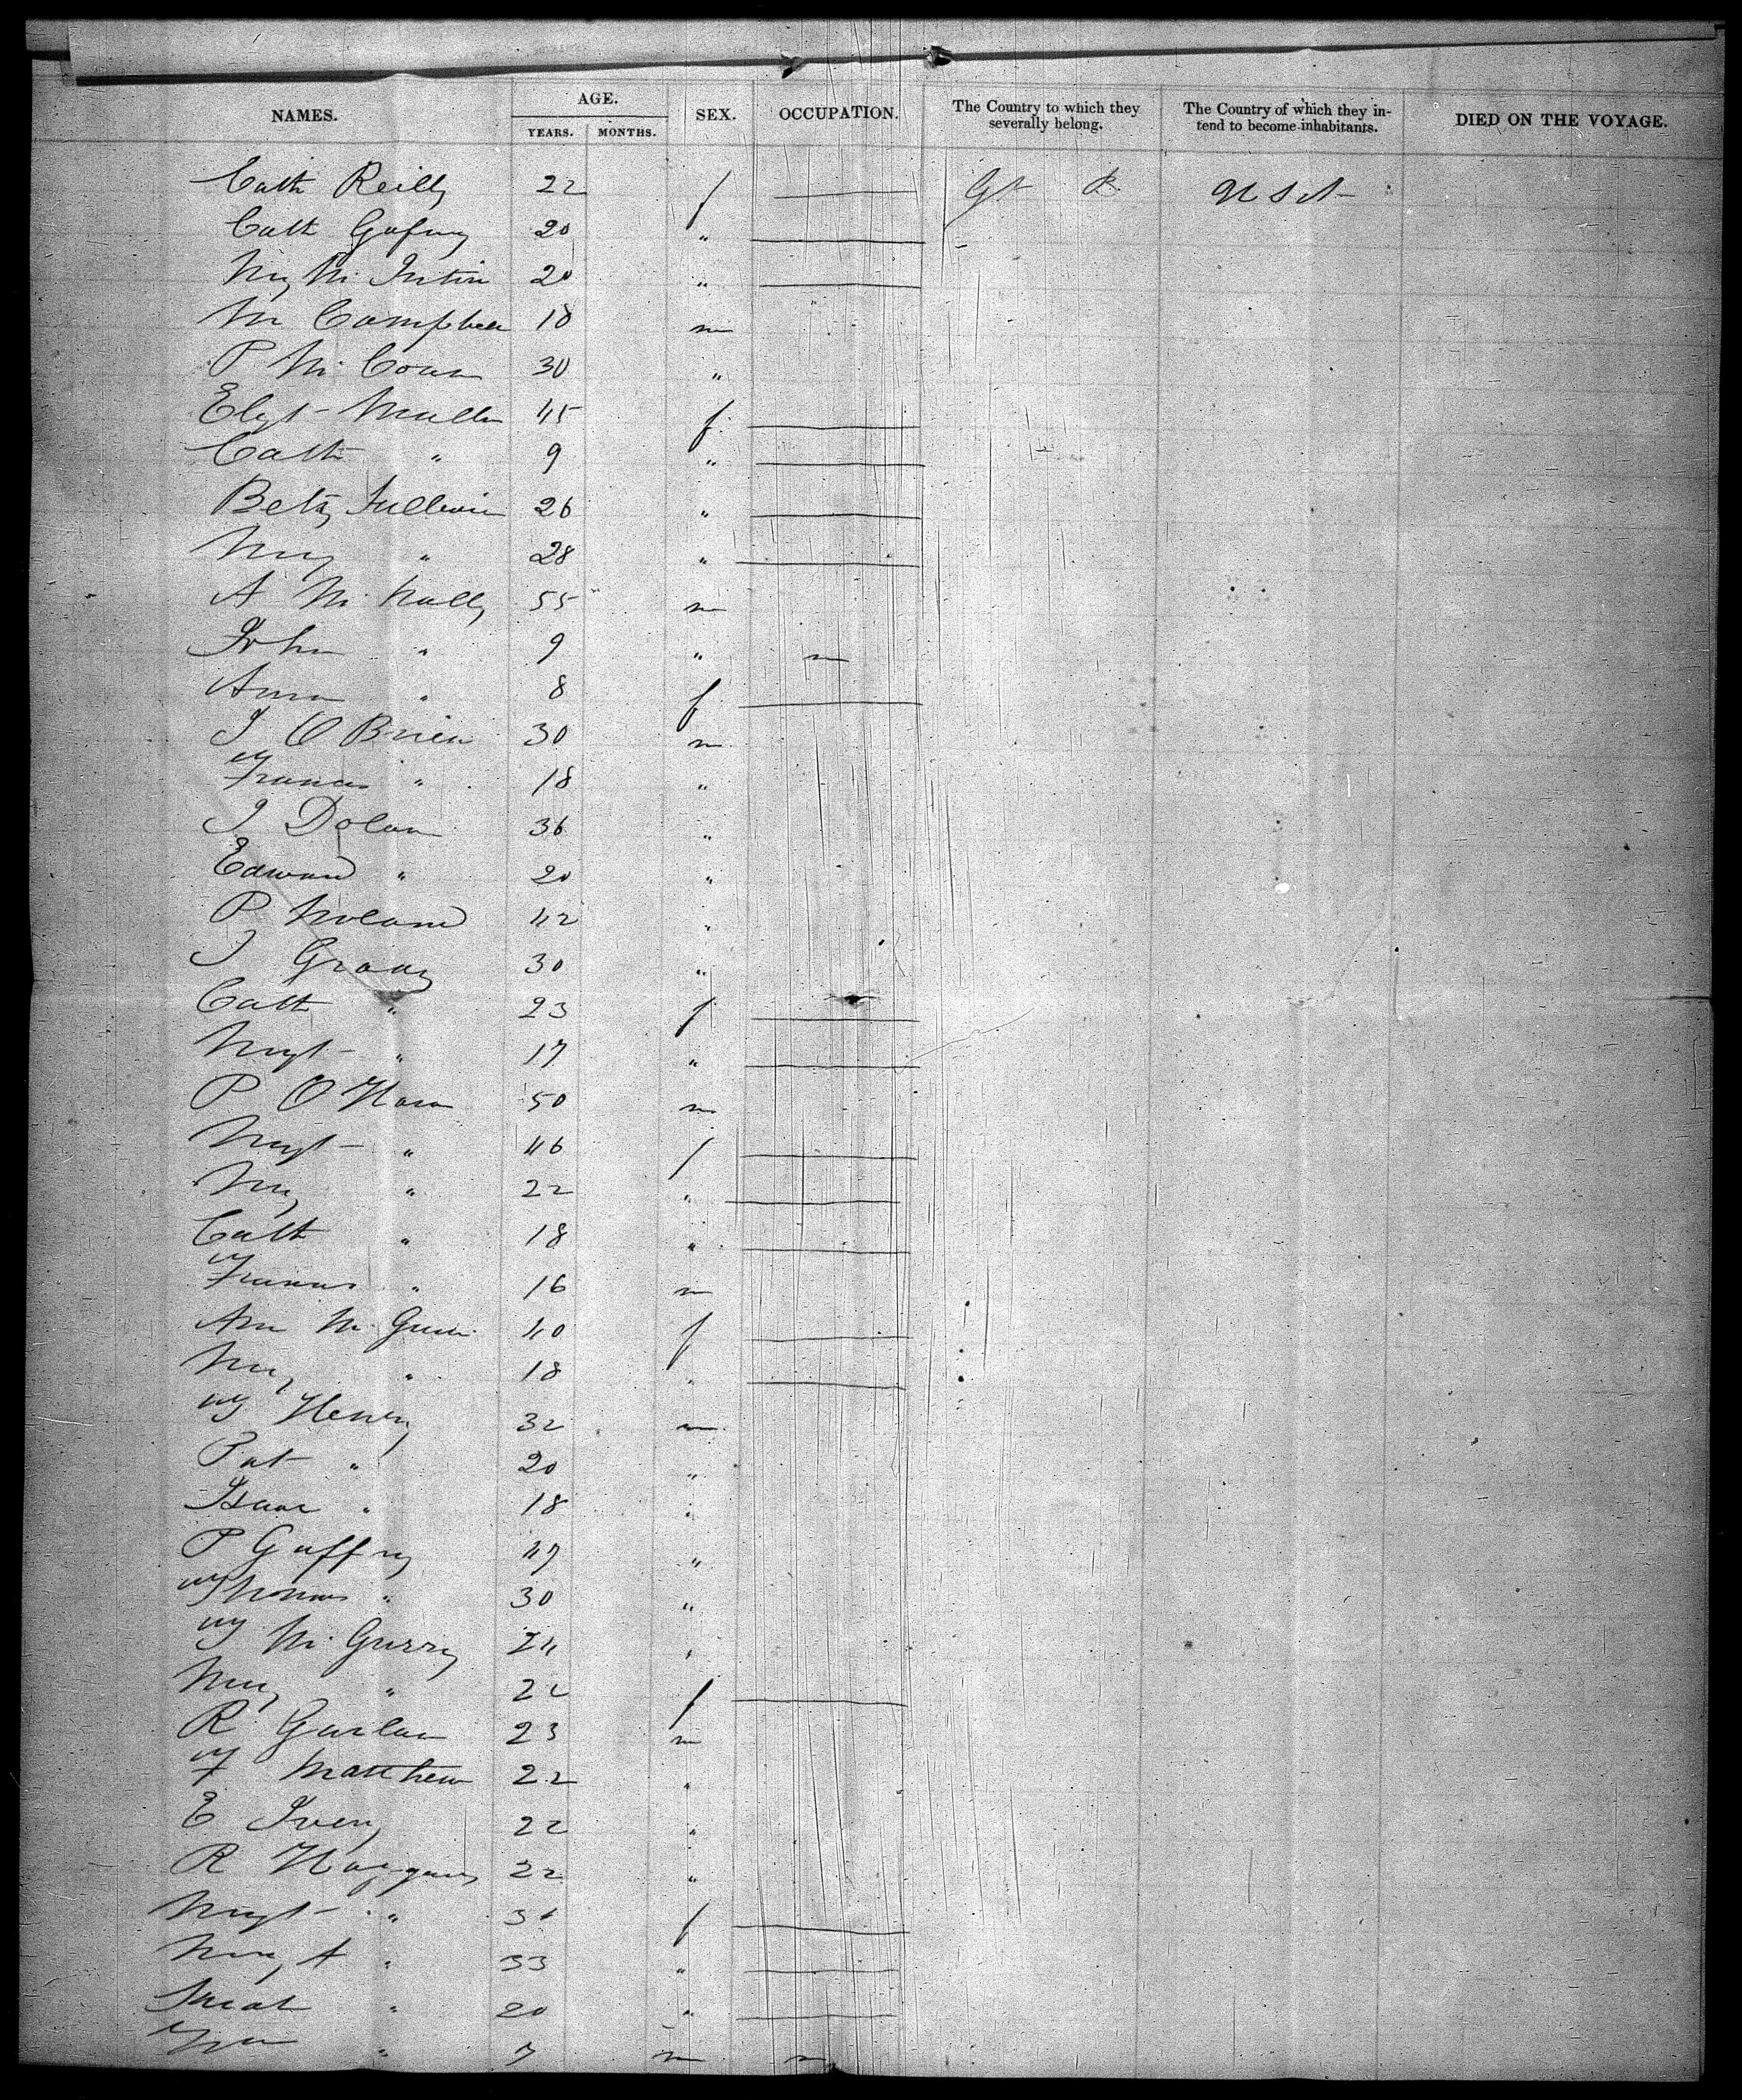 NAMES. AGE. SEX. OCCUPATION. The Country to which they severally belong. The Country of which they intend to become inhabitants. DIED ON THE VOYAGE.
YEARS. MONTHS.
Cath Reilly 22 f Gt B U S A
Cath Gafny 20 "
My Mc 20 "
M Campbell 18 m
P Mc Cown 30 "
Elizt Mullen 45 f
Cath " 9 "
Betsy Sullivan 26 "
My " 28 "
A Mc Nally 55 m
John " 9 " m
Ann " 8 f
J O Brien 30 m
Francis " 18 "
J Dolan 36 "
Edward " 20 "
P Noland 42 "
J Grady 30 "
Cath " 23 f
Mgt " 17 "
P O Hara 50 m
Mgt " 46 f
My " 22 "
Cath " 18 "
Francis " 16 m
Ann Mc 40 f
My " 18 "
Henry 32 m
Pat " 20 "
Isaac " 18 "
P Gaffny 47 "
Thomas " 30 "
T Mc Gurry 24 "
My " 22 f
R Garlan 23 m
F Matthew 22 "
E Ivery 22 "
R Haggars 22 "
Mgt " f
My A " 33 "
Sarah " 20 "
" 7 m m